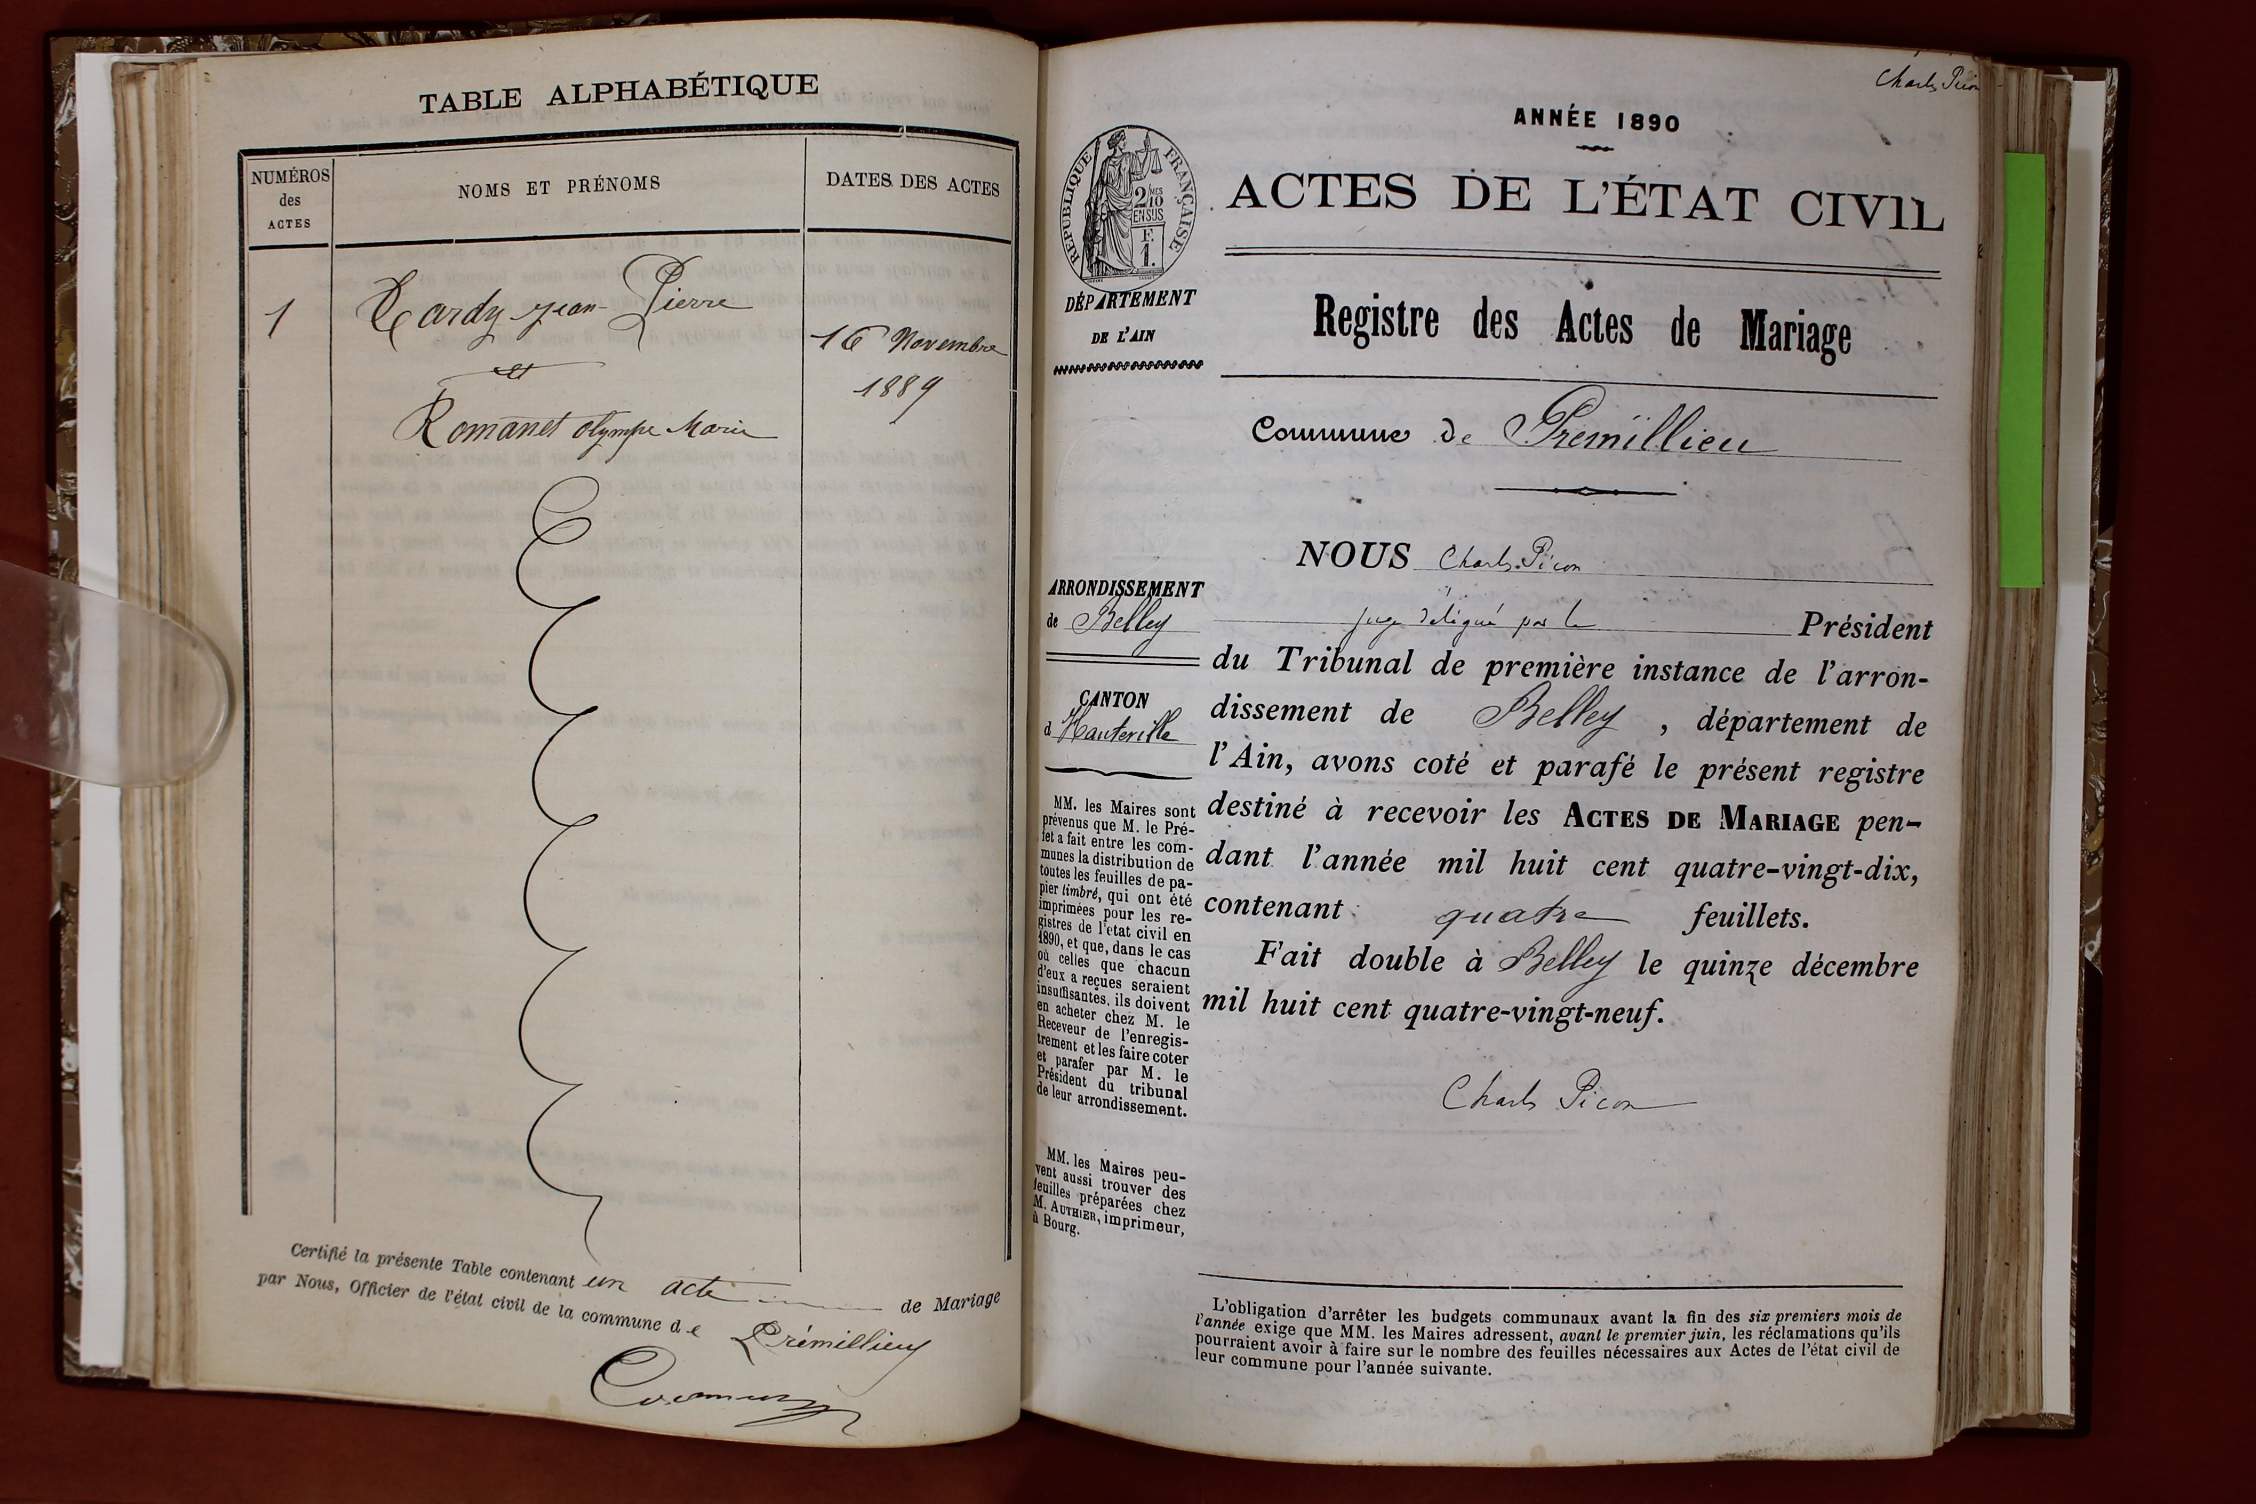 TABLE ALPHABÉTIQUE
NUMÉROS
des
ACTES
NOMS ET PRÉNOMS
DATES DES ACTES
1
Tardy Jean-Pierre
16 Novembre
et
1889
Romanet Olympe Marie
Certifié la présente Table contenant un acte de Mariage
par Nous, Officier de l'état civil de la commune de Prémillieu
Charles Picon
ANNÉE 1890
RÉPUBLIQUE FRANÇAISE
2/10 MES
EN SUS
F.
1.
ACTES DE L'ÉTAT CIVIL
DÉPARTEMENT
DE L'AIN
Registre des Actes de Mariage
Commune de Prémillieu
NOUS Charles Picon
juge délégué par le Président
du Tribunal de première instance de l'arron-
dissement de Belley, département de
l'Ain, avons coté et parafé le présent registre
destiné à recevoir les ACTES DE MARIAGE pen-
dant l'année mil huit cent quatre-vingt-dix,
contenant quatre feuillets.
Fait double à Belley le quinze décembre
mil huit cent quatre-vingt-neuf.
Charles Picon
ARRONDISSEMENT
de Belley
CANTON
d Hauteville
MM. les Maires sont
prévenus que M. le Pré-
fet a fait entre les com-
munes la distribution de
toutes les feuilles de pa-
pier timbré, qui ont été
imprimées pour les re-
gistres de l'état civil en
1890, et que, dans le cas
où celles que chacun
d'eux a reçues seraient
insuffisantes, ils doivent
en acheter chez M. le
Receveur de l'enregis-
trement et les faire coter
et parafer par M. le
Président du tribunal
de leur arrondissement.
MM. les Maires peu-
vent aussi trouver des
feuilles préparées chez
M. AUTHIER, imprimeur,
à Bourg.
L'obligation d'arrêter les budgets communaux avant la fin des six premiers mois de
l'année exige que MM. les Maires adressent, avant le premier juin, les réclamations qu'ils
pourraient avoir à faire sur le nombre des feuilles nécessaires aux Actes de l'état civil de
leur commune pour l'année suivante.